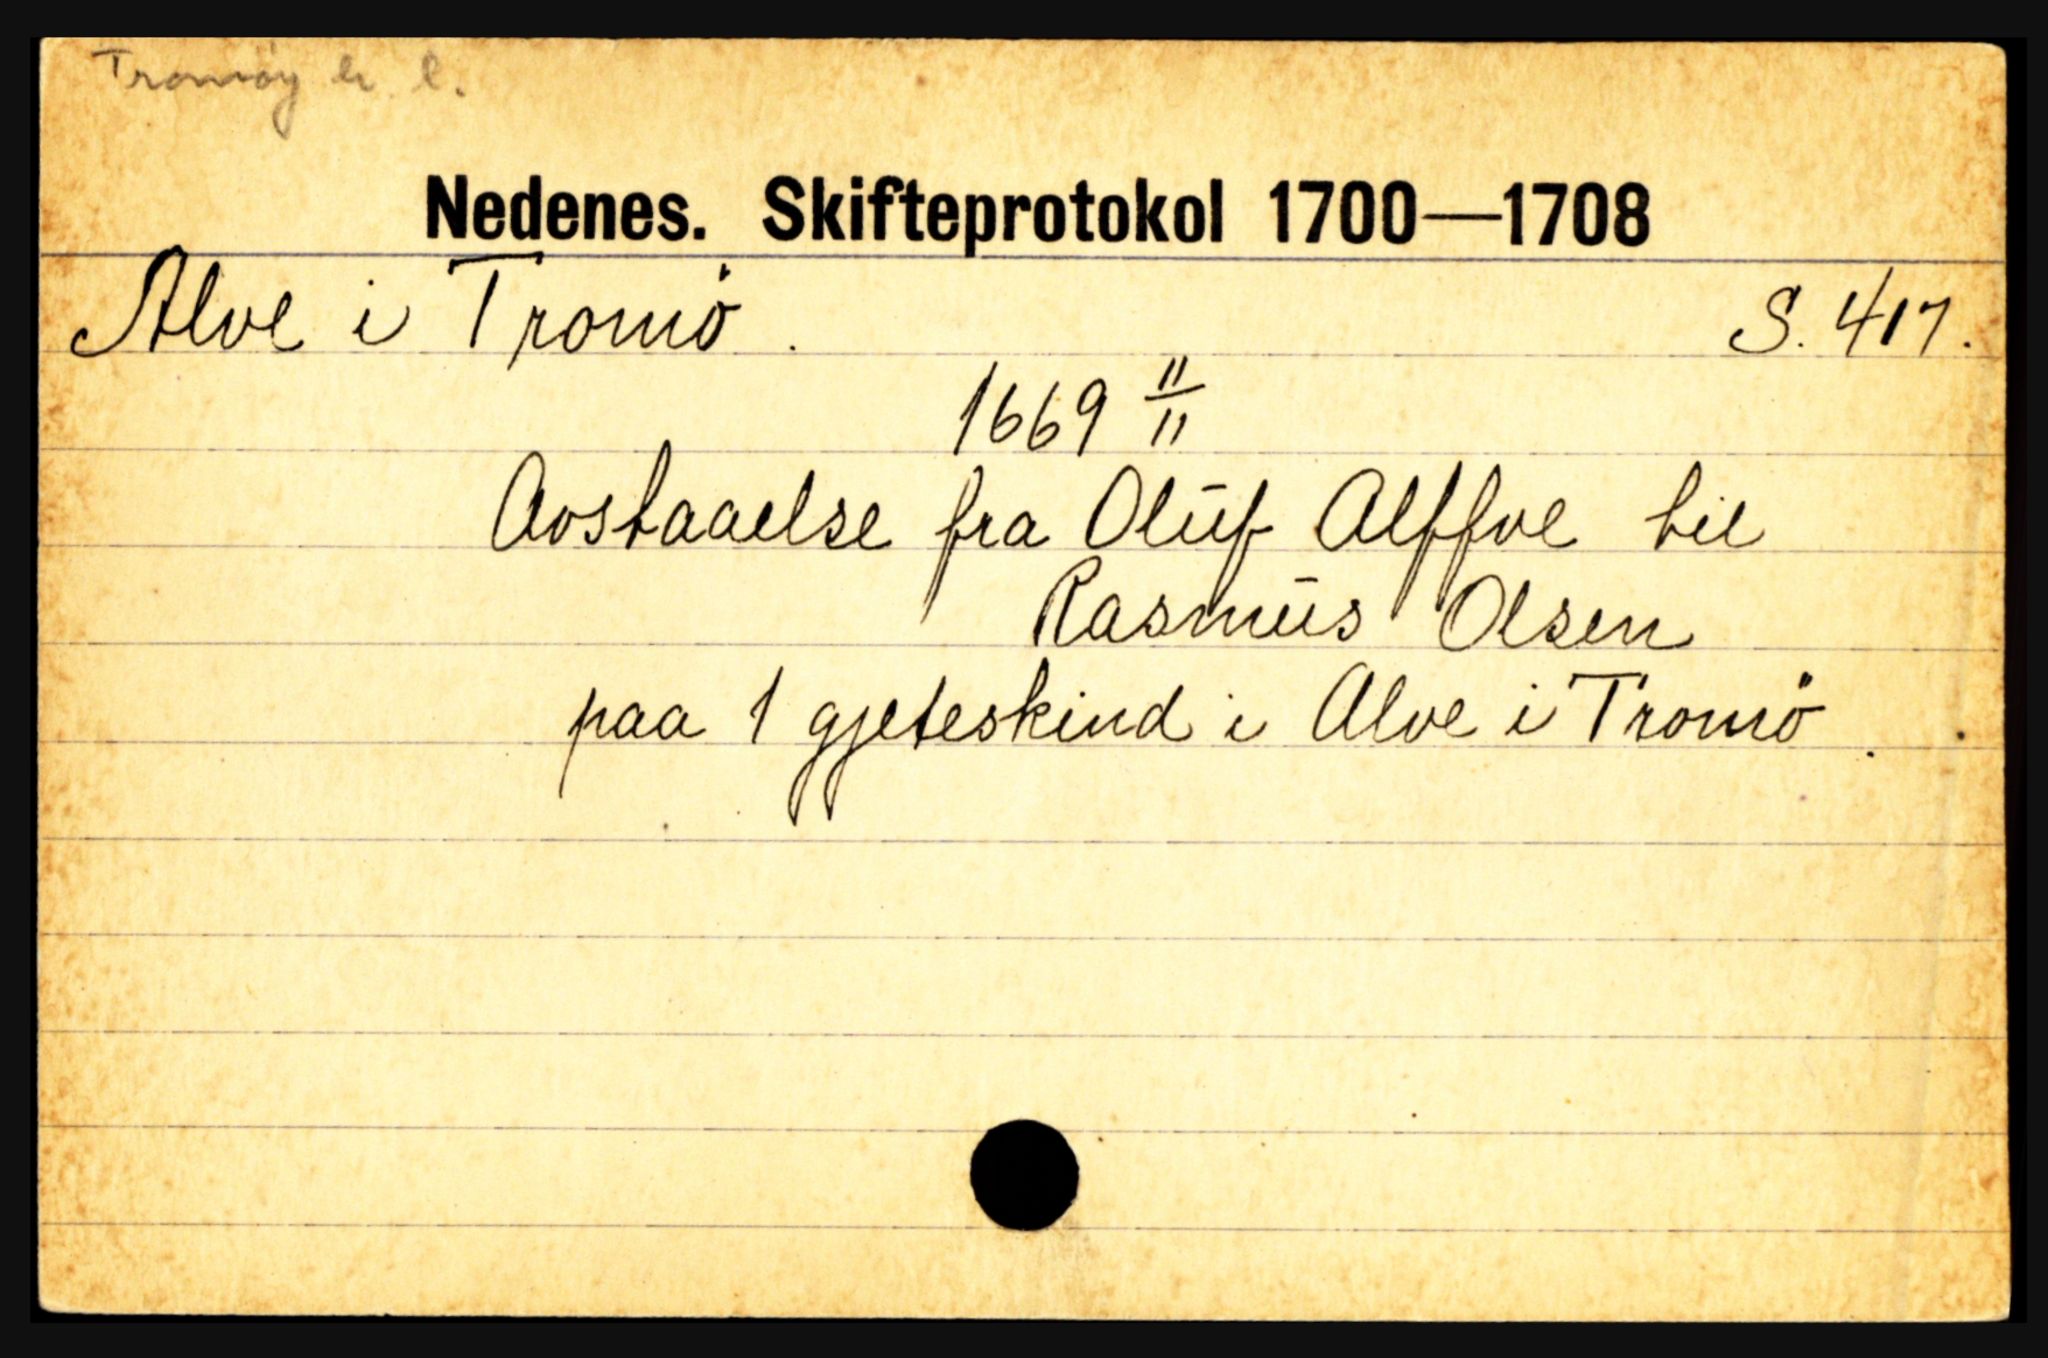 Tromøy h. l.
Nedenes. Skifteprotokol 1700—1708
Alve i Tromö. S. 417.
1669 11/11
Avstaaelse fra Oluf Alffve til
Rasmus Olsen
paa 1 gjeteskind i Alve i Tromö.